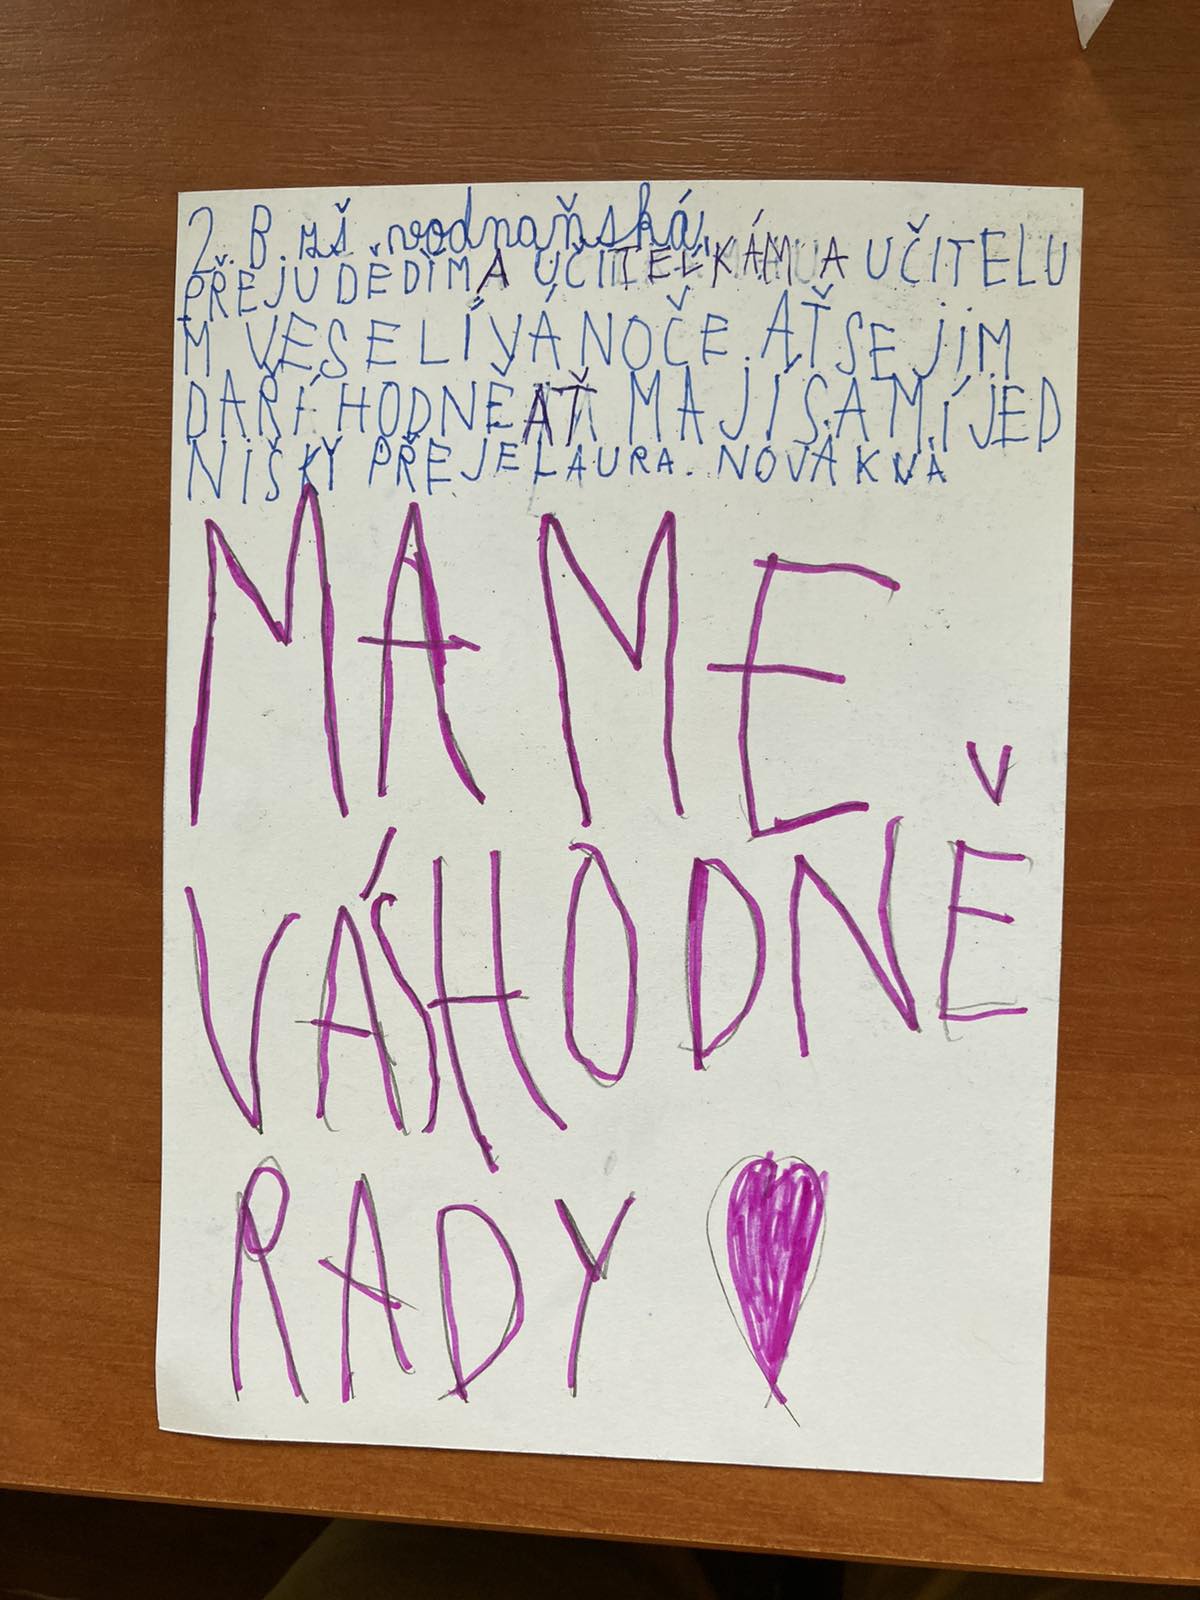 2. B. zš vodnaňská.
PŘEJU DĚDÍM A UČITELKÁM A UČITELU
M VESELÍ VÁNOČE. AŤ SE JIM
DAŘÍ HODNĚ AŤ MAJÍ SAMÍ JED
NIŠKY PŘEJE LAURA. NOVÁKNÁ
MAME
VÁS HODNĚ
RADY